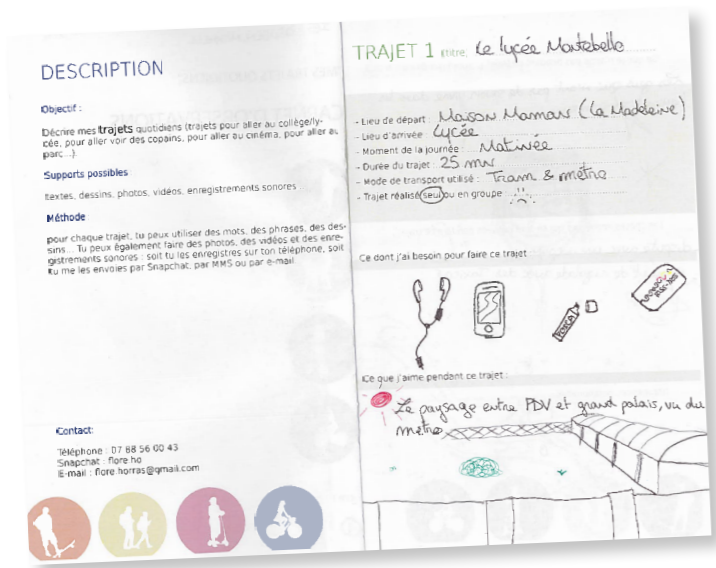 DESCRIPTION
Objectif :
Décrire mes trajets quotidiens (trajets pour aller au collège/ly-
cée, pour aller voir des copains, pour aller au cinéma, pour aller au
parc...).
Supports possibles
textes, dessins, photos, vidéos, enregistrements sonores
Méthode
pour chaque trajet, tu peux utiliser des mots, des phrases, des des-
sins... Tu peux également faire des photos, des vidéos et des enre-
gistrements sonores : soit tu les enregistres sur ton téléphone, soit
tu me les envoies par Snapchat, par MMS ou par e-mail.
Contact:
Téléphone : 07 88 56 00 43
Snapchat : flore.ho
E-mail : flore.horras@gmail.com
TRAJET 1 (titre: Le lycée Montebello
- Lieu de départ : Maison Maman (La Madeleine)
- Lieu d'arrivée : Lycée
- Moment de la journée : Matinée
- Durée du trajet : 25 mn
- Mode de transport utilisé : Tram & métro
- Trajet réalisé seul ou en groupe :
Ce dont j'ai besoin pour faire ce trajet
Ce que j'aime pendant ce trajet :
Le paysage entre PDV et grand palais, vu du
métro